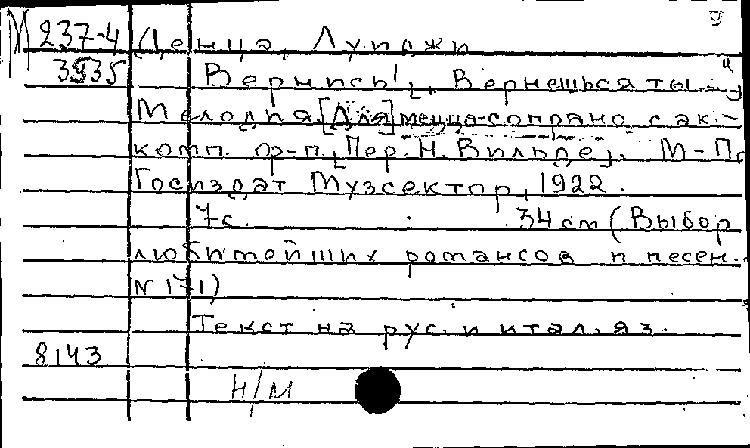 М 237-4 Денца, Луиджи
3535 Вернись!, Вернешься ты
Мелодия. [Для] меццо-сопрано с ак-
комп. ф-п. Пер. Н. Вильде. М-П
Госиздат Музсектор, 1922.
7 с. 34 см (Выбор
любимейших романсов и песен.
N 171)
Текст на рус. и итал. яз.
8143
Н/М